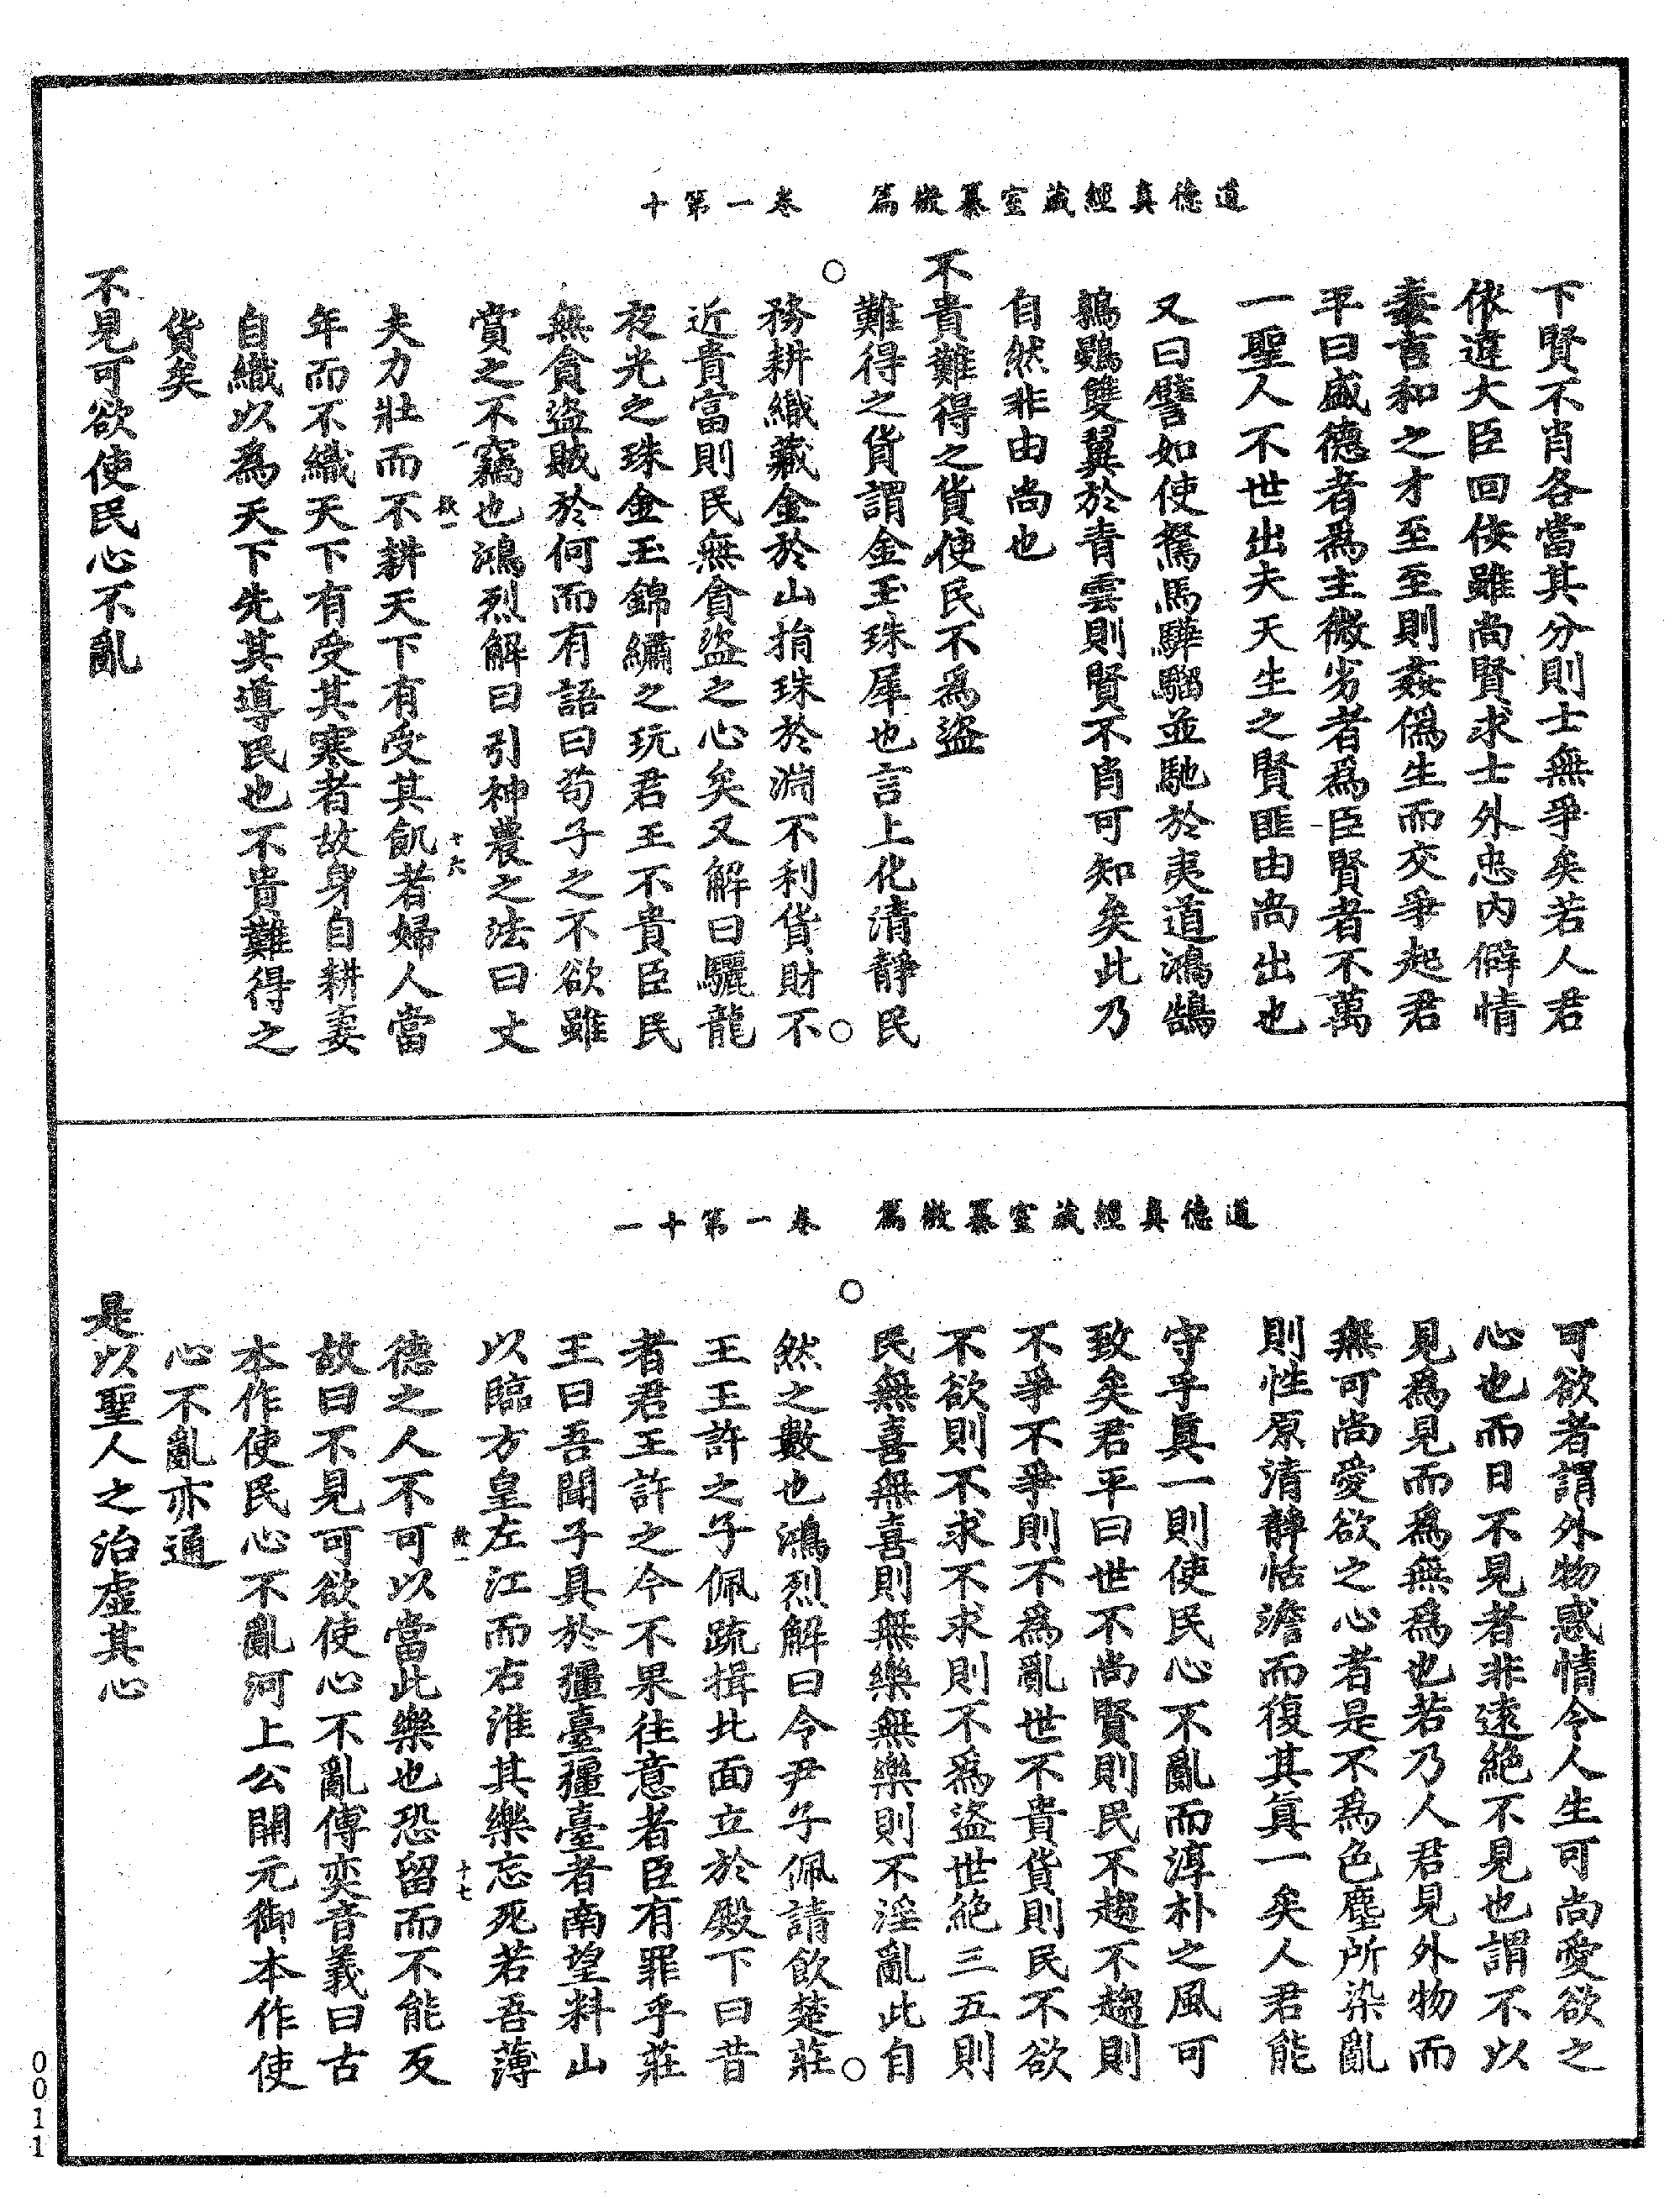 道德真經藏室纂微篇　卷一第十
下賢不肖各當其分則士無爭矣若人君
依違大臣回佞雖尚賢求士外忠內僻情
毒言和之才至至則姦僞生而交爭起君
平曰盛德者爲主微劣者爲臣賢者不萬
一聖人不世出夫天生之賢匪由尚出也
又曰譬如使駑馬驊騮並馳於夷道鴻鵠
鷃雙翼於青雲則賢不肖可知矣此乃
自然非由尚也
不貴難得之貨使民不為盜
難得之貨謂金玉珠犀也言上化清靜民
務耕織藏金於山捐珠於淵不利貨財不
近貴富則民無貪盜之心矣又解曰驪龍
夜光之珠金玉錦繡之玩君王不貴臣民
無貪盜賊於何而有語曰苟子之不欲雖
賞之不竊也鴻烈解曰引神農之法曰丈
欲一
十六
夫力壯而不耕天下有受其飢者婦人當
年而不織天下有受其寒者故身自耕妻
自織以為天下先其導民也不貴難得之
貨矣
不見可欲使民心不亂
道德真經藏室纂微篇　卷一第十一
可欲者謂外物惑情令人生可尚愛欲之
心也而曰不見者非遠絕不見也謂不以
見為見而爲無爲也若乃人君見外物而
無可尚愛欲之心者是不爲色塵所染亂
則性原清靜恬澹而復其真一矣人君能
守乎真一則使民心不亂而淳朴之風可
致矣君平曰世不尚賢則民不趨不趨則
不爭不爭則不為亂世不貴貨則民不欲
不欲則不求不求則不爲盜世絕三五則
民無喜無喜則無樂無樂則不淫亂此自
然之數也鴻烈解曰令尹子佩請飲楚莊
王王許之子佩疏揖北面立於殿下曰昔
者君王許之今不果往意者臣有罪乎莊
王曰吾聞子具於彊臺彊臺者南望料山
以臨方皇左江而右淮其樂忘死若吾薄
欲一
十七
德之人不可以當此樂也恐留而不能反
故曰不見可欲使心不亂傅奕音義曰古
本作使民心不亂河上公開元御本作使
心不亂亦通
是以聖人之治虛其心
0011